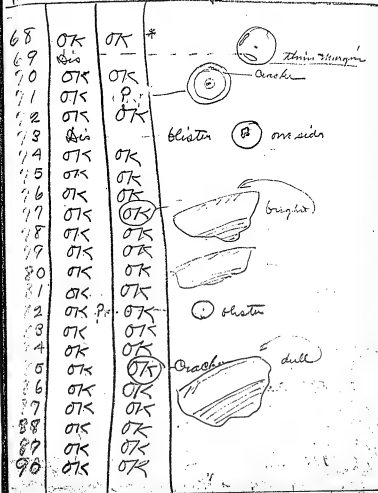 68 OK OK *
69 Dis thin margin
70 OK OK cracks
71 OK ?
72 OK OK
73 Dis blister one side
74 OK OK
75 OK OK
76 OK OK
77 OK OK bright
78 OK OK
79 OK OK
80 OK OK
81 OK OK
82 OK ? OK blister
83 OK OK
84 OK OK
85 OK OK cracks dull
86 OK OK
87 OK OK
88 OK OK
89 OK OK
90 OK OK